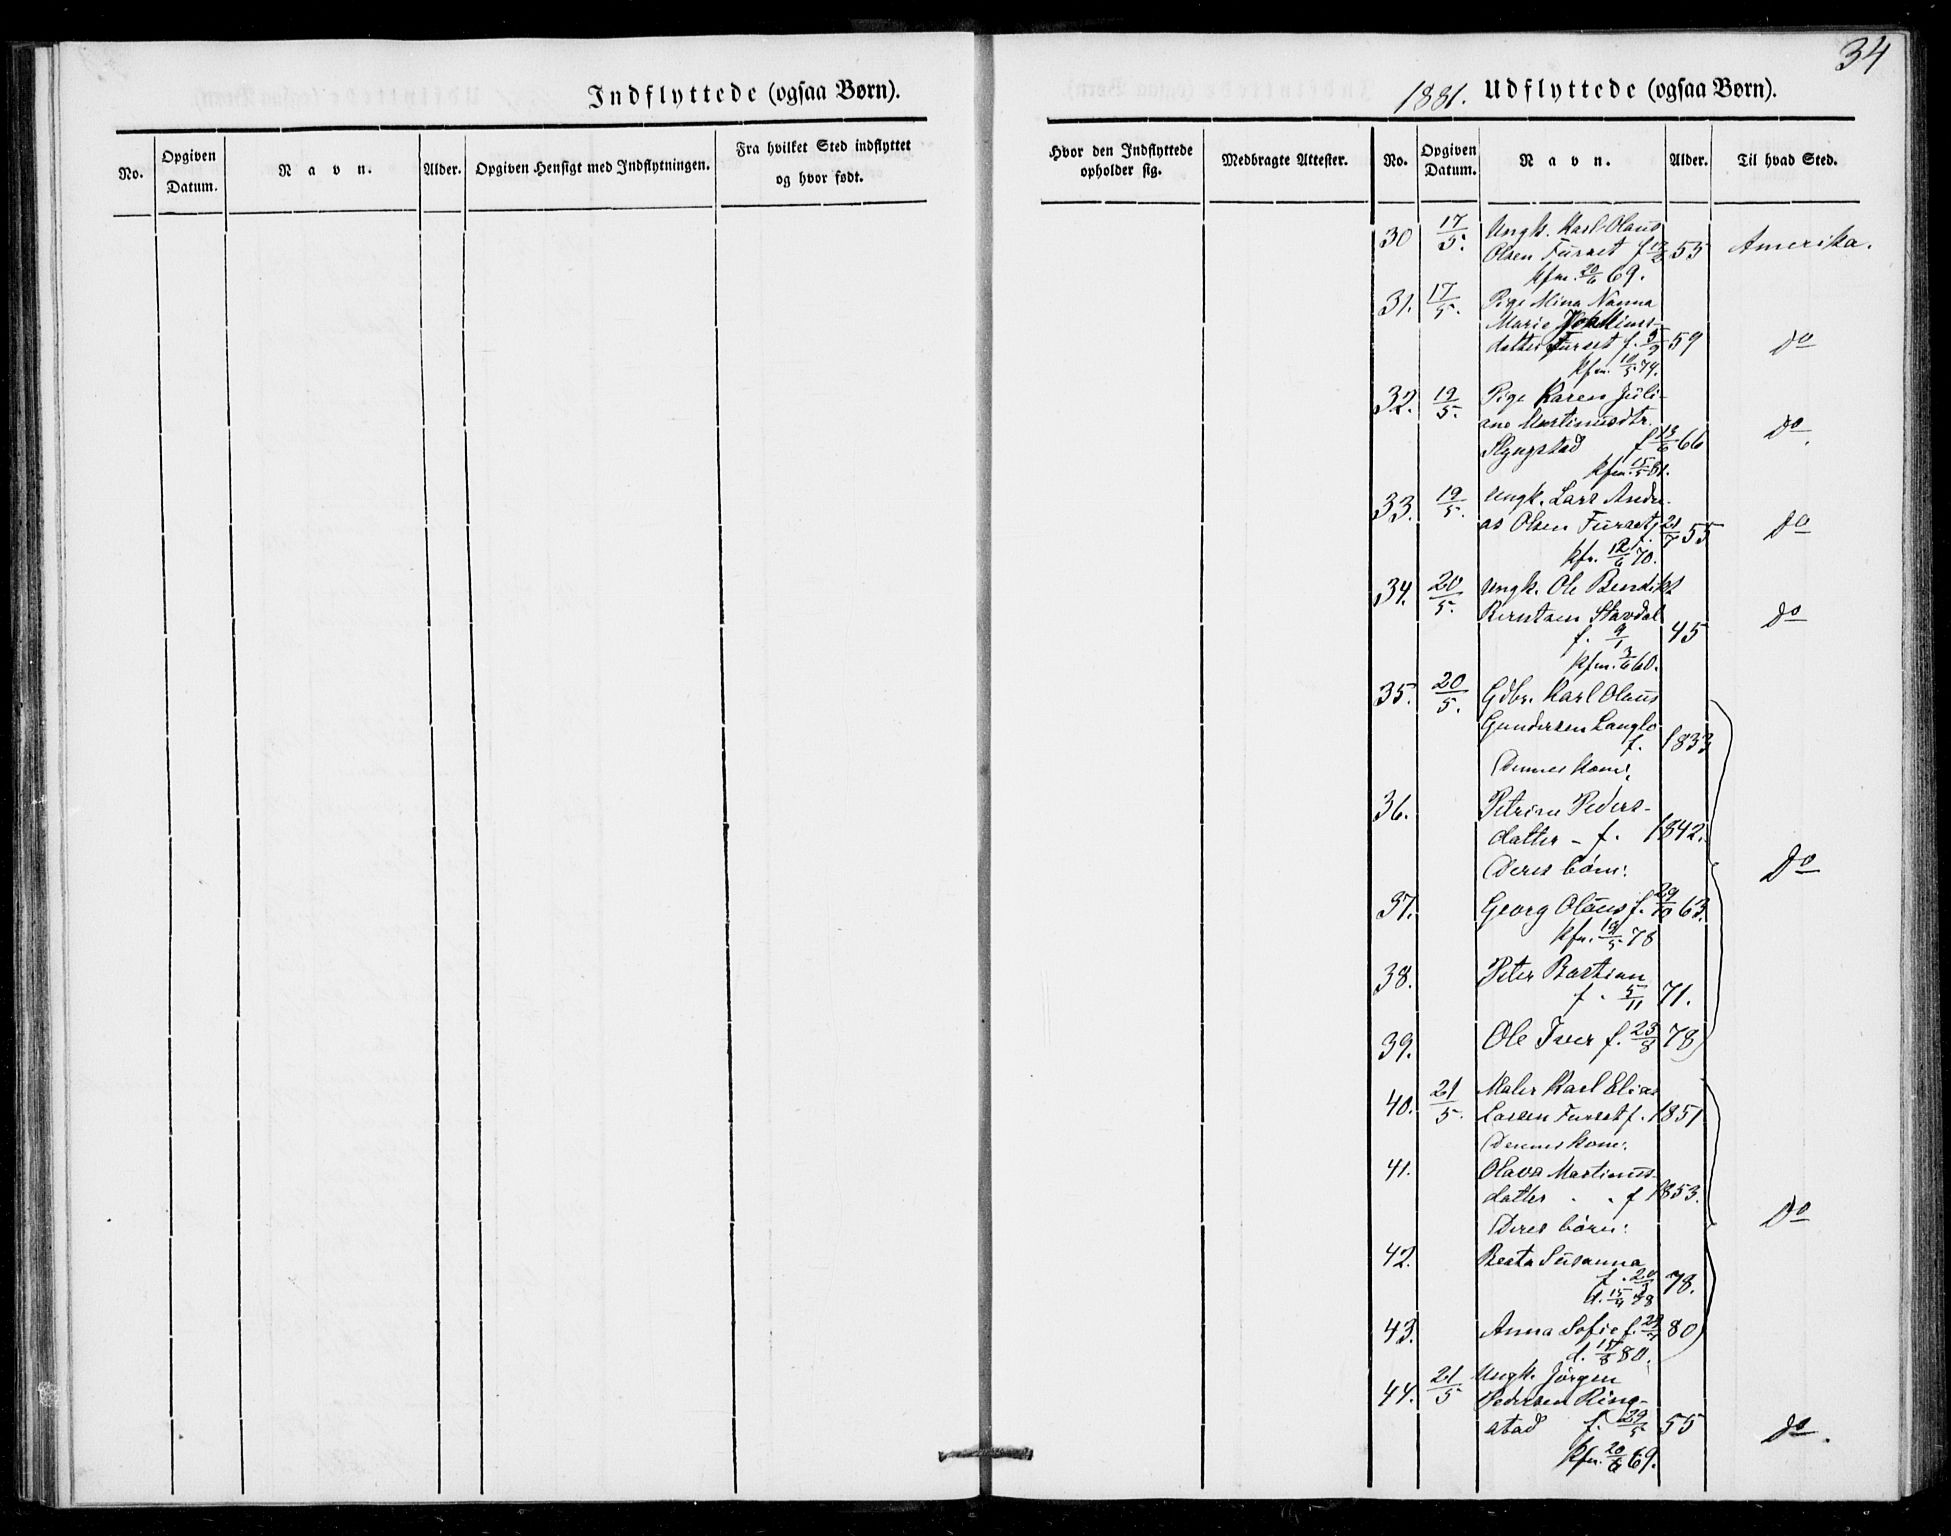 34
Indflyttede (ogsaa Børn).
1881. Udflyttede (ogsaa Børn).
No.
Opgiven Datum.
Navn.
Alder.
Opgiven Hensigt med Indflytningen.
Fra hvilket Sted indflyttet og hvor født.
Hvor den Indflyttede opholder sig.
Medbragte Attester.
No.
Opgiven Datum.
Navn.
Alder.
Til hvad Sted.
30 17/5. Ungk. Karl Olaus
Olsen Furset f 55 Amerika.
kfm. 20/6 69.
31. 17/5. Pige Mina Nanna
Marie
datter Furset f. 59 do
kfm. 10/5 74.
32. 19/5. Pige Karen Juli-
ane Martinusdtr.
f 13/6 66 do
kfm. 15/5 81.
33. 19/5. Ungk. Lars Andre-
as Olsen Furset f. 21/7 55 do
kfr. 12/6 70.
34. 20/5. Ungk. Ole Bendikt
Berntsen Stavdal do
f. 9/1 45
kfm. 3/6 60.
35. 20/5. Gdbr. Karl Olaus
Gundersen Langlo
f. 1833
Dennes kone:
36. Petrine Peders-
datter - f. 1842.
Deres børn: do
37. Georg Olaus f. 29/10 63.
kfm. 19/5 78
38. Peter Bastian
f. 5/11 71.
39. Ole Iver f. 23/8 78
40. 21/5. Maler Karl Elias
Larsen Furset f. 1851
Dennes kone:
41. Olava Martinus-
datter - - f 1853.
Deres børn: do
42. Beata Susanna
f. 20/3 78.
d. 78
43. Anna Sofie f. 80
d. 80.
44. 21/5 Ungk. Jørgen
Pedersen Ring-
stad f. 29/5 55 do.
kfm. 20/6 69.